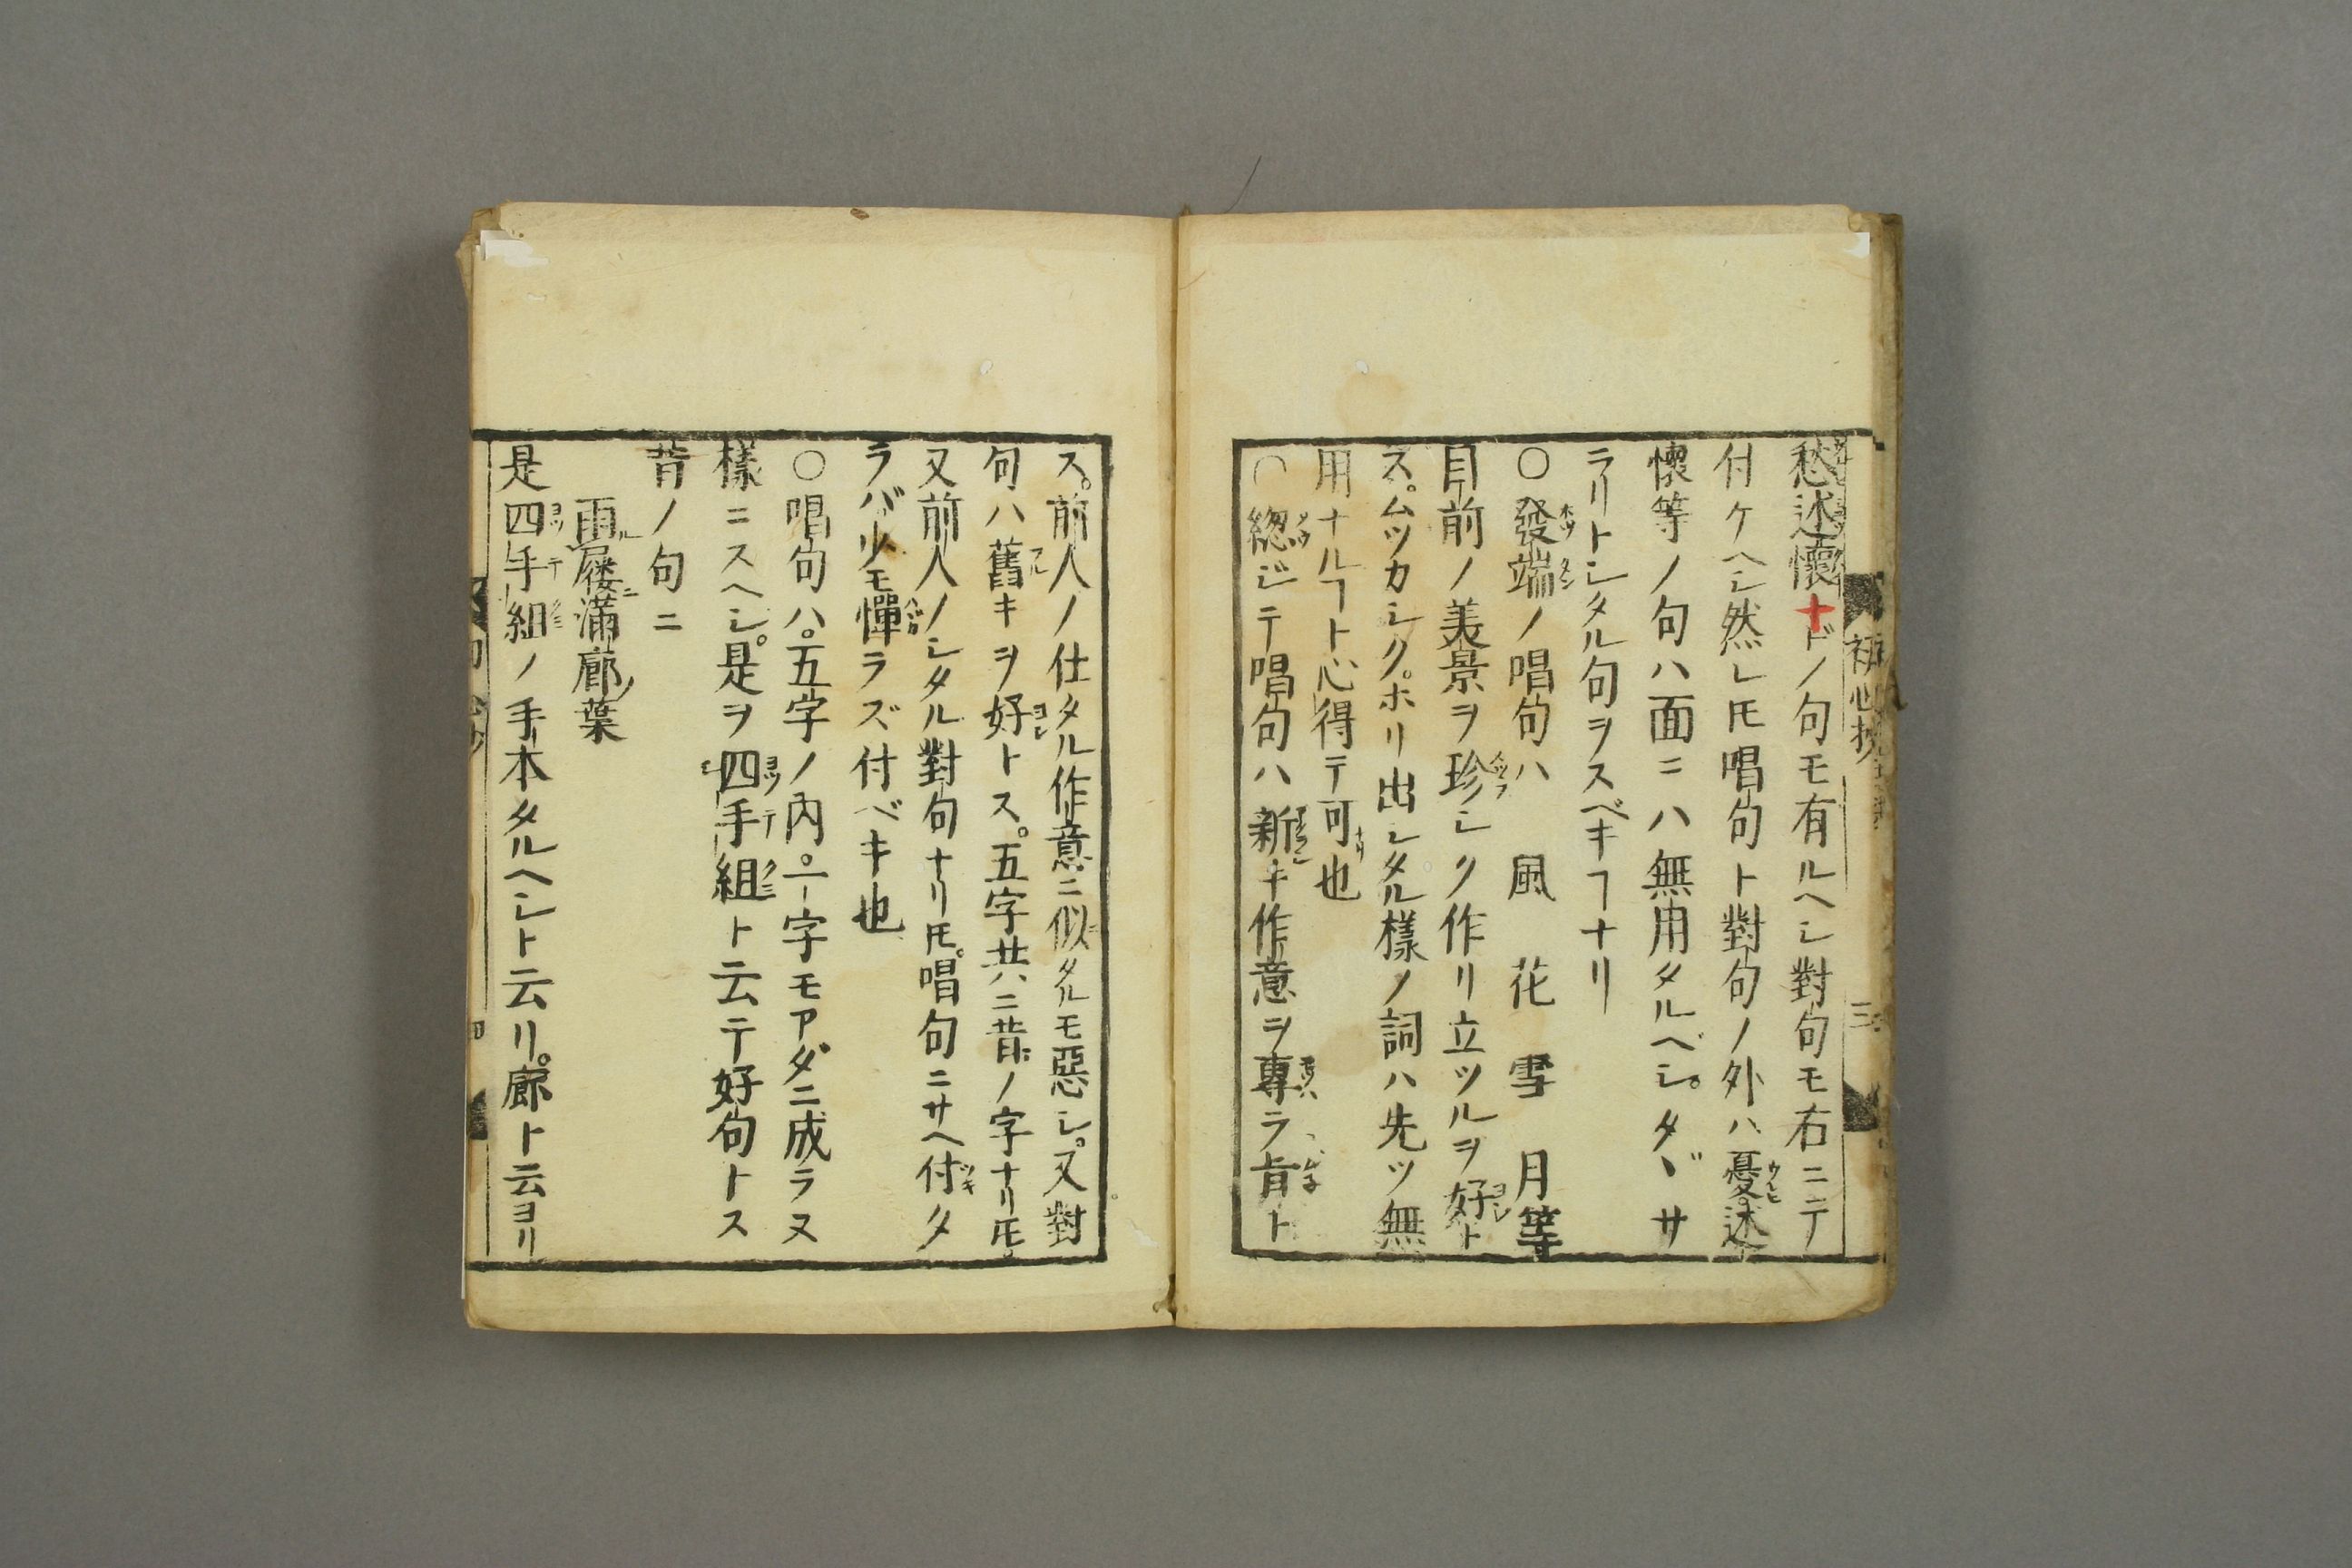 愁述懷ナドノ句モ有ルヘシ對句モ右ニテ
付ケヘシ然レ𪜈唱句ト對句ノ外ハ憂述
懷等ノ句ハ面ニハ無用タルベシ。タヾサ
ラリトシタル句ヲスベキヿナリ
○發端ノ唱句ハ 風 花 雪 月等
目前ノ美景ヲ珍シク作リ立ツルヲ好ト
ス。ムツカシク。ホリ出シタル樣ノ詞ハ先ツ無
用ナルヿト心得テ可也
○總ジテ唱句ハ新キ作意ヲ專ラ肯ト
ス。前人ノ仕タル作意ニ似タルモ惡シ。又對
句ハ舊キヲ好トス。五字共ニ昔ノ字ナリ𪜈。
又前人ノシタル對句ナリ𪜈。唱句ニサヘ付タ
ラバ少モ憚ラズ付ベキ也
○唱句ハ。五字ノ內。一字モアダニ成ラヌ
樣ニスヘシ。是ヲ四手組ト云テ好句トス
昔ノ句ニ
雨屨滿廊葉
是四手組ノ手本タルヘシト云リ。廊ト云ヨリ
初心抄
三